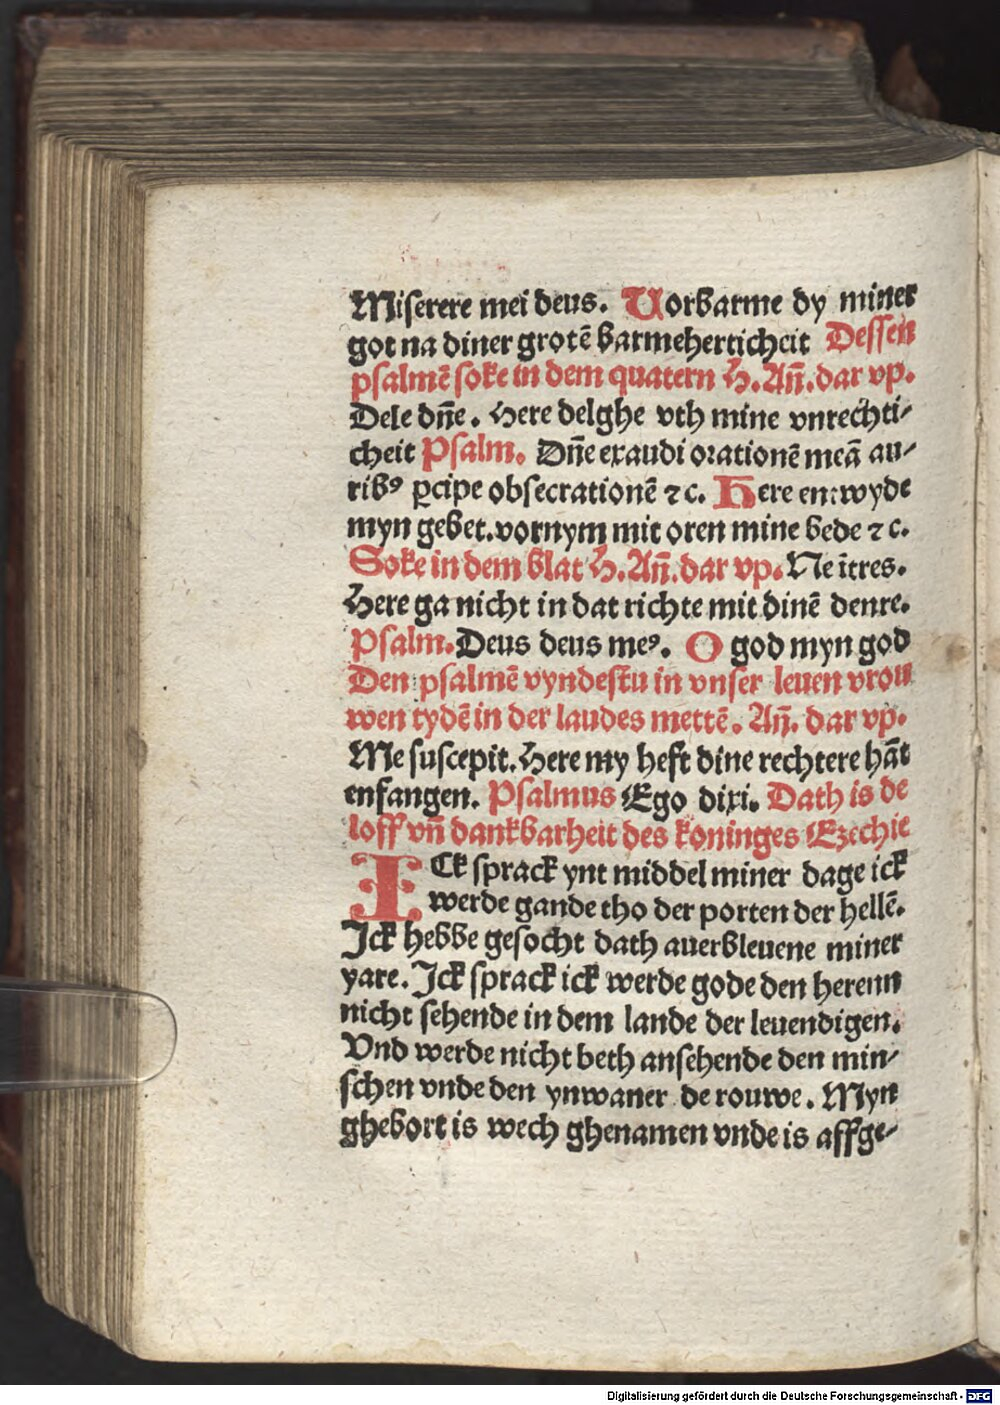 Miserere mei deus. Vorbarme dy miner
got na diner grotē barmeherticheit Dessen
psalmē soke in dem quatern H. Añ. dar vp.
Dele dñe. Here delghe vth mine vnrechti⸗
cheit Psalm. Dñe exaudi orationē meā au⸗
ribꝰ ꝑcipe obsecrationē ⁊c. Here entwyde
myn gebet. vornym mit oren mine bede ⁊c.
Soke in dem blat H. Añ. dar vp. Ne ītres.
Here ga nicht in dat richte mit dinē denre.
Psalm. Deus deus meꝰ. O god myn god
Den psalmē vyndestu in vnser leuen vrou
wen tydē in der laudes mettē. Añ. dar vp.
Me suscepit. Here my heft dine rechtere hāt
enfangen. Psalmus Ego dixi. Dath is de
loff vñ dankbarheit des koninges Ezechie
ICk sprack ynt middel miner dage ick
werde gande tho der porten der hellē.
Ick hebbe gesocht dath auerbleuene miner
yare. Ick sprack ick werde gode den herenn
nicht sehende in dem lande der leuendigen.
Vnd werde nicht beth ansehende den min⸗
schen vnde den ynwaner de rouwe. Myn
ghebort is wech ghenamen vnde is affge⸗
Digitalisierung gefördert durch die Deutsche Forschungsgemeinschaft - DFG